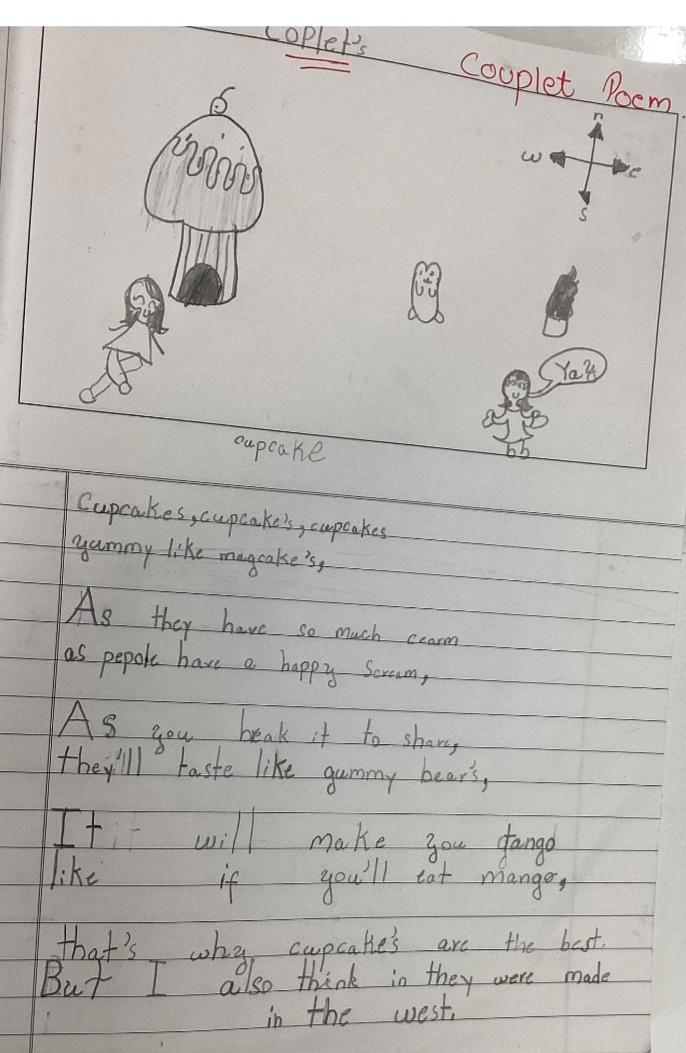 Coplet's
Couplet Poem
n
w e
s
Yay
cupcake
Cupcakes, cupcake's, cupcakes
yummy like magcake's,
As they have so much cearm
as pepole have a happy Scream,
As you break it to share,
they'll taste like gummy bear's,
It will make you tango
like if you'll eat mango,
that's why cupcake's are the best.
But I also think in they were made
in the west.